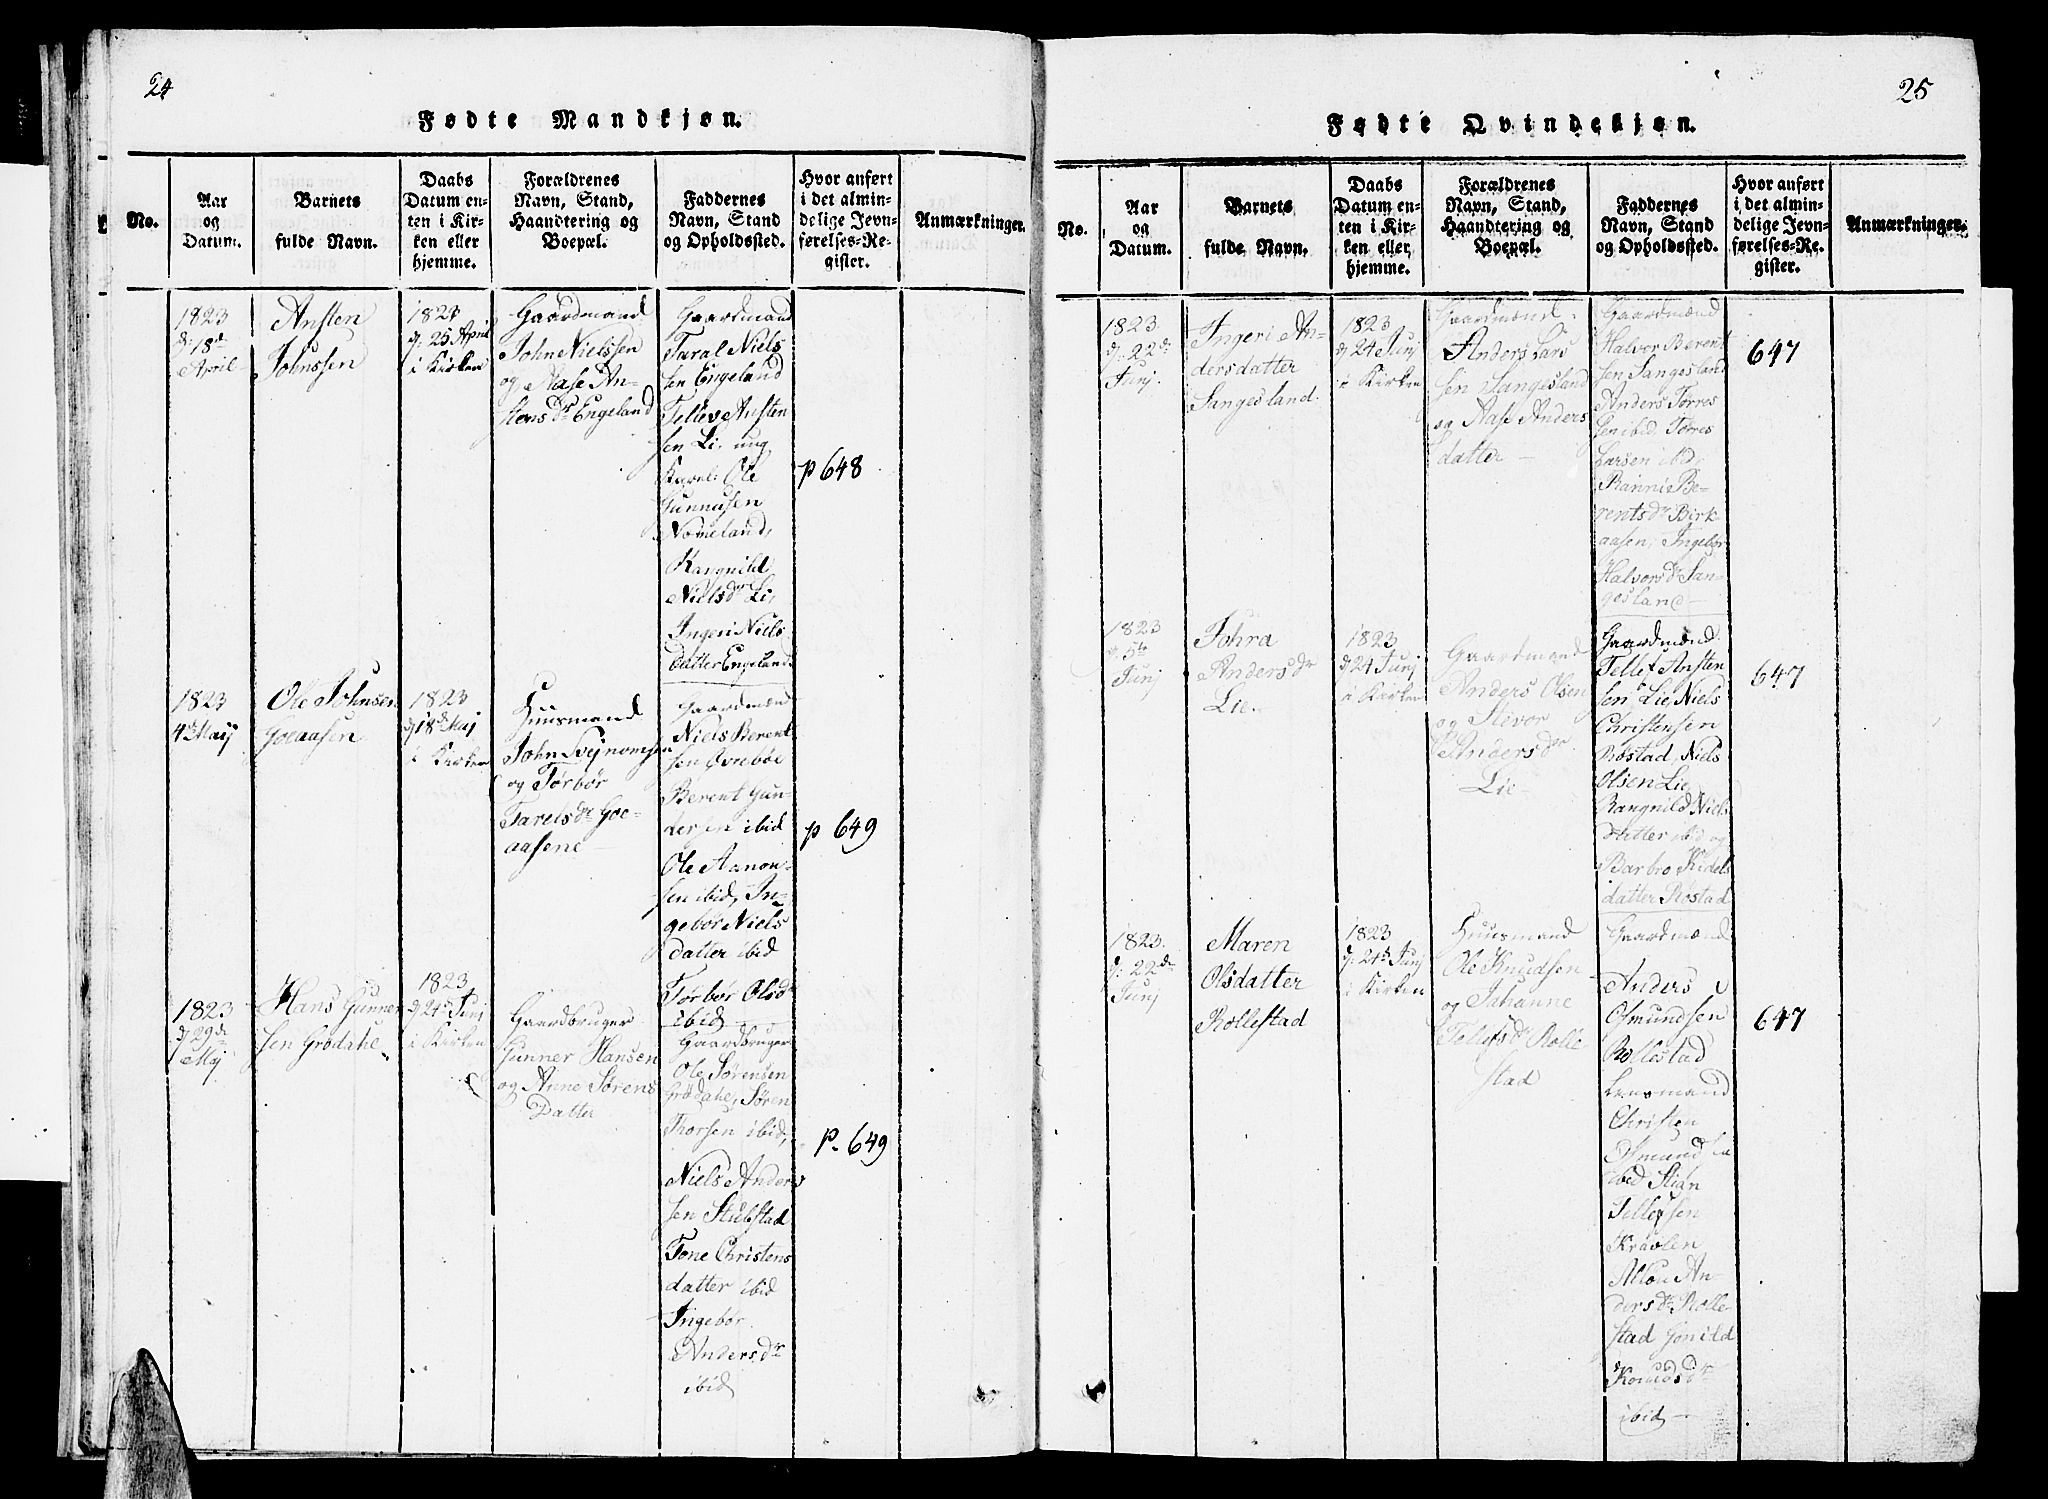 24
Fødte Mandkjøn.
No.
Aar
og
Datum.
Barnets
fulde Navn.
Daabs
Datum en-
ten i Kir-
ken eller
hjemme.
Forældrenes
Navn, Stand,
Haandtering og
Boepæl.
Faddernes
Navn, Stand
og Opholdssted.
Hvor anført
i det almin-
delige Jevn-
førelses-Re-
gister.
Anmærkninger.
1823
d: 18de
April
Ansten
Johnssen
1823
d: 25 April
i Kirken
Gaardmand
John Nielssen
og Aase An-
stens dr Engeland
Gaardmand
Taral Niels
sen Engeland
Tellev Ansten
sen Li, ung
Karel: Ole
Gunnusen
Nomeland,
Rangnild
Niels dr Li,
Ingeri Niels
datter Engeland
p 648
1823
4de Maij
Ole Johnsen
Goeaasen
1823
d 18 Maj
i Kirken
Huusmand
John Svejnomsen
og Tørbør
Tarels dr Goe-
aasene
Gaardmænd
Niels Berent
sen Øvrebøe
Berent Gun-
dersen ibid
Ole Aanon-
sen ibid, In-
gebør Niels
datter ibid
Tørbør Olsdr
ibid
p 649
1823
d 29de
Maj
Hans Gunner
sen Grødahe
1823
d 24 Junj
i Kirken
Gaardbruger
Gunner Hansen
og Anne Sørens
Datter
Gaardbruger
Ole Sørensen
Grødahe, Søren
Thorsen ibid,
Niels Anders
sen Stubstad
Tone Christens
datter ibid
Ingebør
Anders dr
ibid
p. 649
25
Fødte Qvindekjøn.
No.
Aar
og
Datum.
Barnets
fulde Navn.
Daabs
Datum en-
ten i Kir-
ken eller
hjemme.
Forældrenes
Navn, Stand,
Haandtering og
Boepæl.
Faddernes
Navn, Stand
og Opholdssted.
Hvor anført
i det almin-
delige Jevn-
førelses-Re-
gister.
Anmærkninger.
1823
d: 22de
Junj.
Ingeri An-
dersdatter
Sangesland.
1823
d 24 Junj
i Kirken
Gaardmænd
Anders Lars
sen Sangesland
og Aase Anders
datter
Gaardmænd
Halvor Berent
sen Sangesland
Anders Tørres
sen ibid, Tørres
Larsen ibid,
Ranni Be-
rents dr Birk-
aasen, Ingebør
Halvors dr San-
gesland
647
1823
d. 5te
Junj
Johra
Anders dr
Lie
1823
d 24 Junj
i Kirken
Gaardmand
Anders Olsen
og Stevor
Anders dr
Lie
Gaardmænd
Tellef Ansten
sen Lie, Niels
Christensen
Røstad, Niels
Olsen Lie
Rangnild Niels
datter ibid og
Barbro Kidels
datter Røstad
647
1823
d: 22de
Junj
Maren
Olsdatter
Rollestad
1823
d: 24 Junj
i Kirken
Huusmand
Ole Knudsen
og Johanne
Tellefs dr Rolle
stad
Gaardmænd
Anders
Osmundsen
Rollestad
Lensmand
Christen
Osmundsen
ibid Stian
Tellefsen
Kravlen
An-
ders dr Rolle
stad Gonild
Knuds dr
ibid
647